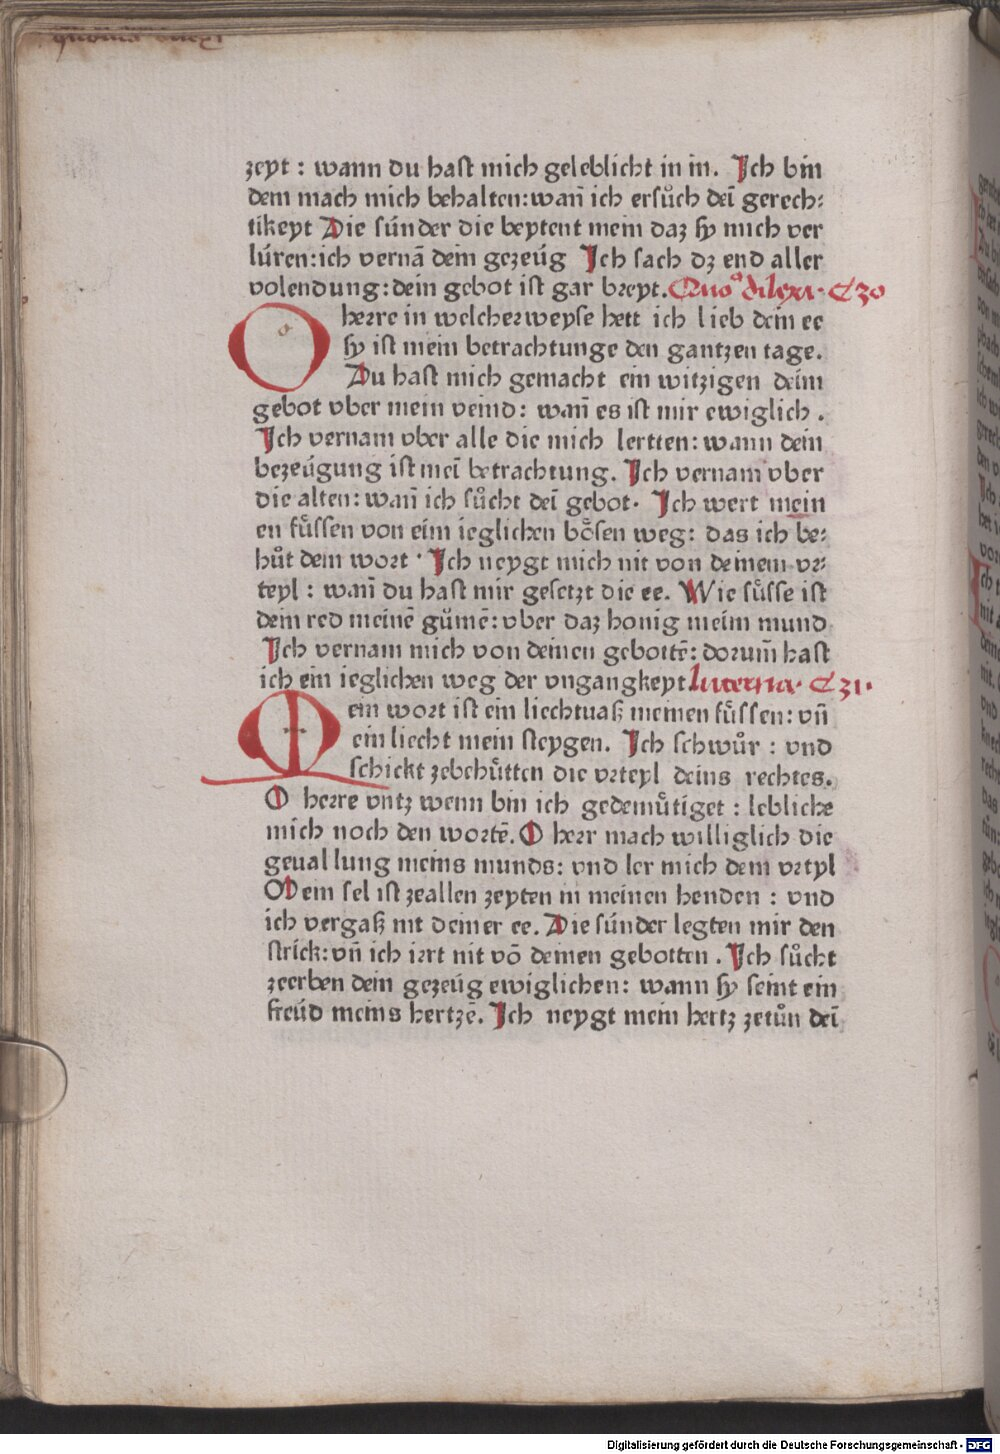 zeyt : wann du hast mich geleblicht in in. Ich bin
dein mach mich behalten:wan̄ ich ersuͦch dei͂ gerech:
tikeyt Die súnder die beytent mein daz sy mich ver
lúren:ich vernã dein gezeúg Ich sach dz end aller
volendung:dein gebot ist gar breyt. Quoͦ dilexi · C 30
O herre in welcher weyse hett ich lieb dein ee
sy ist mein betrachtunge den gantzen tage.
Du hast mich gemacht ein witzigen deim
gebot vber mein veind: wan̄ es ist mir ewiglich .
Ich vernam vber alle die mich lertten: wann dein
bezeúgung ist mei͂ betrachtung. Ich vernam vber
die alten: wan̄ ich suͦcht dei͂ gebot· Ich wert mein
en fuͤssen von eim ieglichen boͤsen weg: das ich be:
huͤt dein wort · Ich neygt mich nit von deinem vr:
teyl : wan̄ du hast mir gesetzt die ee. Wie suͤsse ist
dein red meinẽ guͦmẽ: vber daz honig meim mund
Ich vernam mich von deinen gebottẽ: dorum̄ hast
ich ein ieglichen weg der vngangkeyt lucerna · C 31 ·
Mein wort ist ein liechtuaß meinen fuͤssen: vn̄
ein liecht mein steygen. Ich schwuͦr : vnd
schickt zebehuͤtten die vrteyl deins rechtes.
O herre vntz wenn bin ich gedemuͤtiget : lebliche
mich noch den wortẽ. O herr mach williglich die
geuallung meins munds: vnd ler mich dein vrtyl
Mein sel ist zeallen zeyten in meinen henden : vnd
ich vergaß nit deiner ee. Die súnder legten mir den
strick: vn̄ ich irrt nit võ deinen gebotten . Ich suͦcht
zeerben dein gezeúg ewiglichen: wann sy seint ein
freúd meins hertzẽ. Ich neygt mein hertz zetuͦn dei͂
Digitalisierung gefördert durch die Deutsche Forschungsgemeinschaft - DFG